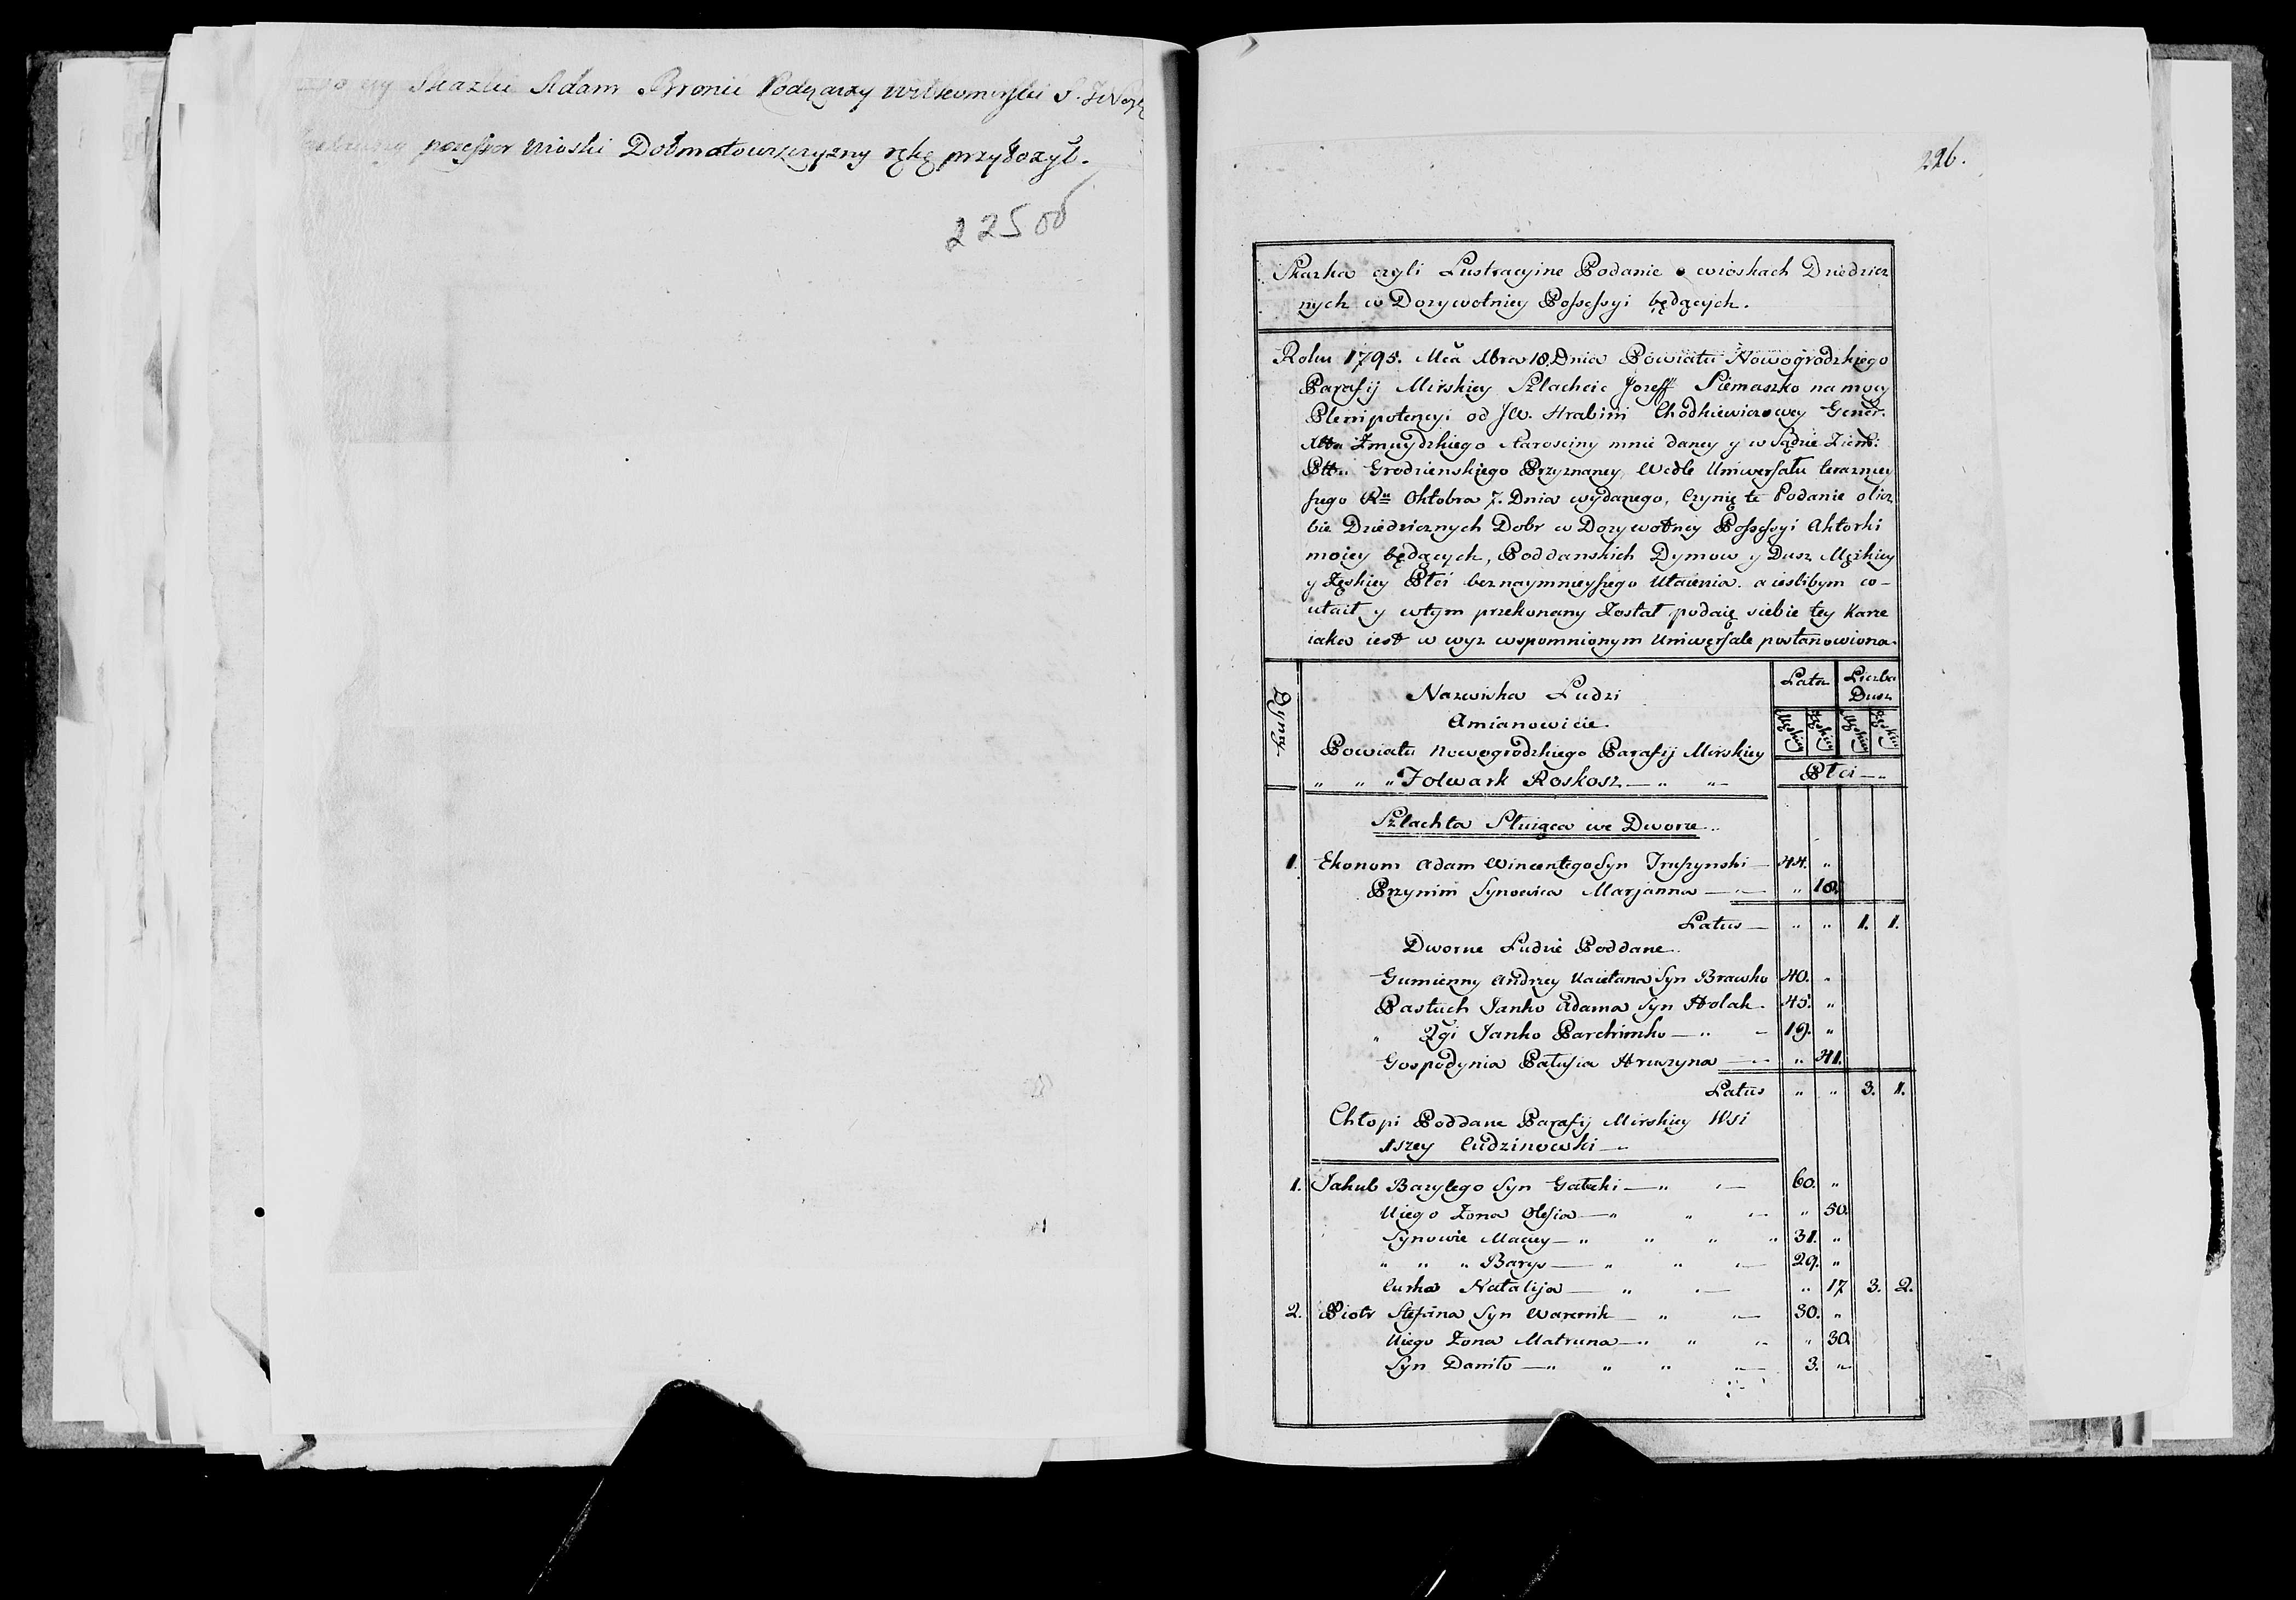 Skazki Adam Bronic Podczaszy
possessor wioski Dołmatowszczyzny rękę przyłożył.
225 об
226.
Skazka czyli Lustracyine Podanie o wioskach Dziedzicz
nych w Dozywotniey Possessyi będących.
Roku 1795. Mca Xbra 18. Dnia Powiatu Nowogrodzkiego
Parafij Mirskiey Szlachcic Jozeff Siemaszko na mocy
Plenipotencyi od JW. Hrabini Chodkiewiczowey Gener.
Xtta Zmuydzkiego Starosciny mnie daney y w Sądzie Ziem:
Pttu Grodzienskiego Przyznaney Wedle Uniwersału terazniey
szego Ru Oktobra 7. Dnia wydanego, Czynię te Podanie o licz
bie Dziedzicznych Dobr w Dozywotniey Possessyi Aktorki
moiey będących, Poddanskich Dymow y Dusz Męzkiey
y Zęskiey Płci bez naymnieyszego Utaienia. a iesłibym co-
utaił y w tym przekonany Został podaię siebie tey Karze
iaka iest w wyz wspomnionym Uniwersale postanowiona.
Dymy
Nazwiska Ludzi
Lata
Liczba
Dusz
Amianowicie
Męskiey
Zęskiey
Męskiey
Zęskiey
Powiatu Nowogrodzkiego Parafij Mirskiey
Płci
" " " Folwark Roskosz — " "
Szlachta Służąca we Dworze
1. Ekonom Adam Wincentego Syn Truszynski — 44. "
Przynim Synowica Marjanna — " 18.
Latus — " " 1. 1.
Dworne Ludzie Poddane
Gumienny Andrzey Kaietana Syn Brawko 40. "
Pastuch Janko Adama Syn Holak 45. "
" 2gi Janko Parchimko — " — 19. "
Gospodynia Patusia Hruszyna — " 41.
Latus " " 3. 1.
Chłopi Poddane Parafij Mirskiey Wsi
1szey Cudzinowski —
1. Jakub Bazylego Syn Gałecki — " — 60. "
Uiego Zona Olesia — " " — " 50.
Synowie Maciey — " " " " 31. "
" " " Barys — " " — 29. "
Curka Natalija — " — " 17 3. 2.
2. Piotr Stefana Syn Warenik — " — 30. "
Uiego Zona Matruna — " " " " 30.
Syn Daniło — " " " — 3. "